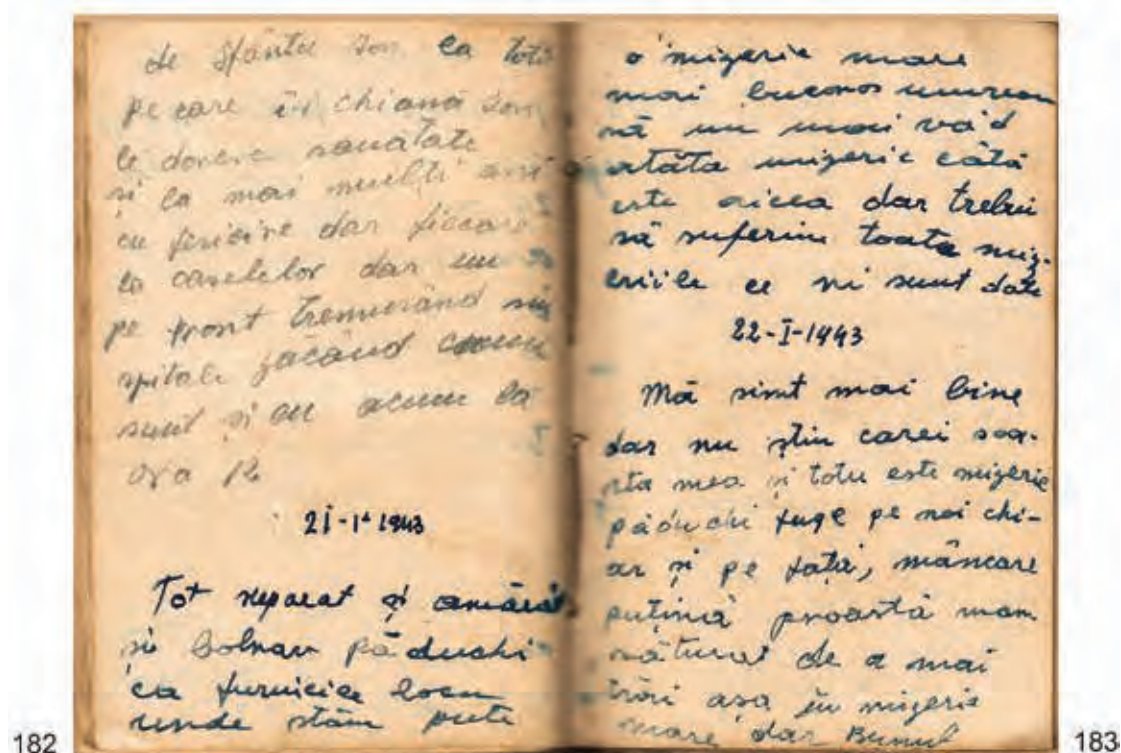 de Sfântu Ion la toti
pe care îi chiamă Ion
le doresc sanatate
si la mai mulți ani
cu fericire dar fiecare
la caselelor dar eu
pe front tremurând
spitale zăcând cum
sunt și eu acum la
ora 12
21-I-1943
Tot separat și amărât
si bolnav păduchi
ca furnicile locu
unde stăm pute
o migerie mare
mai bucuros muream
să nu mai văd
atâta migerie câtă
este aicea dar trebui
să suferim toata mige-
eriile ce ni sunt date
22-I-1943
Mă simt mai bine
dar nu știu carei soa-
rta mea si totu este migerie
păduchi fuge pe noi chi-
ar și pe față, mâncare
puțină proastă mam
săturat de a mai
trăi asa în migerie
mare dar Bunul
182
183